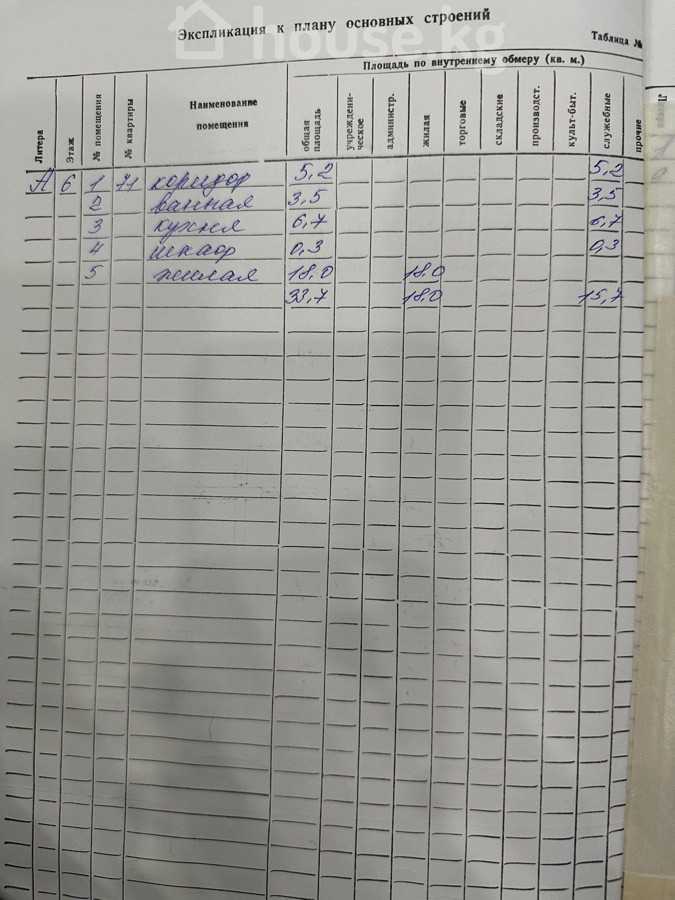 Экспликация к плану основных строений
house.kg
Таблица №
Площадь по внутреннему обмеру (кв. м.)
Литера
Этаж
№ помещения
№ квартиры
Наименование
помещения
общая
площадь
учреждени-
ческое
администр.
жилая
торговые
складские
производст.
культ-быт.
служебные
прочие
А 6 1 71 коридор 5,2 5,2
2 ванная 3,5 3,5
3 кухня 6,7 6,7
4 шкаф 0,3 0,3
5 жилая 18,0 18,0
33,7 18,0 15,7